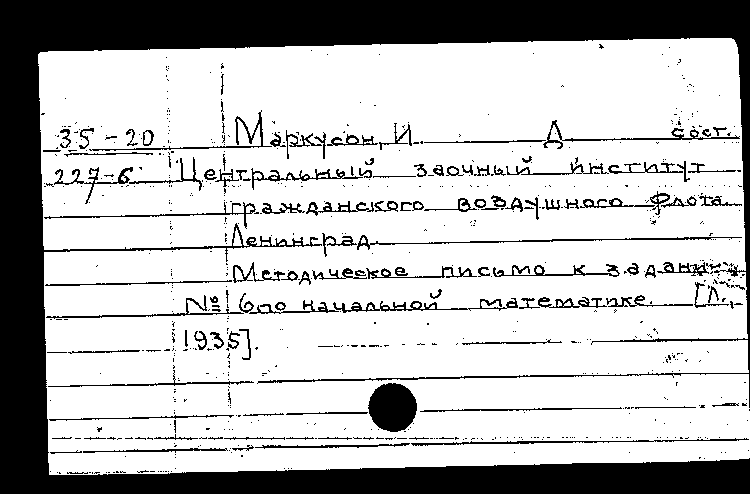 35-20 Маркусон, И. Д. сост.
227-6 Центральный заочный институт
гражданского воздушного флота.
Ленинград.
Методическое письмо к заданию
№ 6 по начальной математике. [Л.,
1935].